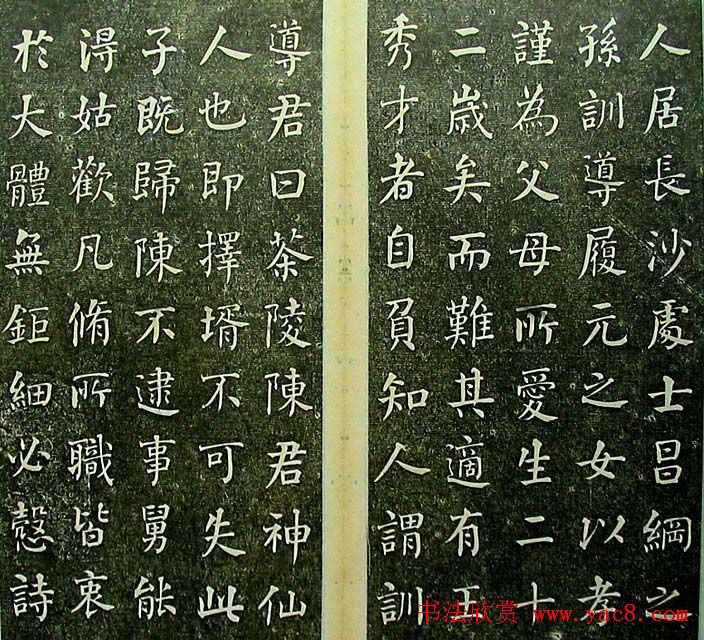 人居長沙處士昌綱之
孫訓導履元之女以孝
謹為父母所愛生二十
二歲矣而難其適有王
秀才者自負知人謂訓
導君曰茶陵陳君神仙
人也即擇壻不可失此
子既歸陳不逮事舅能
得姑歡凡脩所職皆衷
於大體無鉅細必愨詩
书法欣赏 www.yac8.com